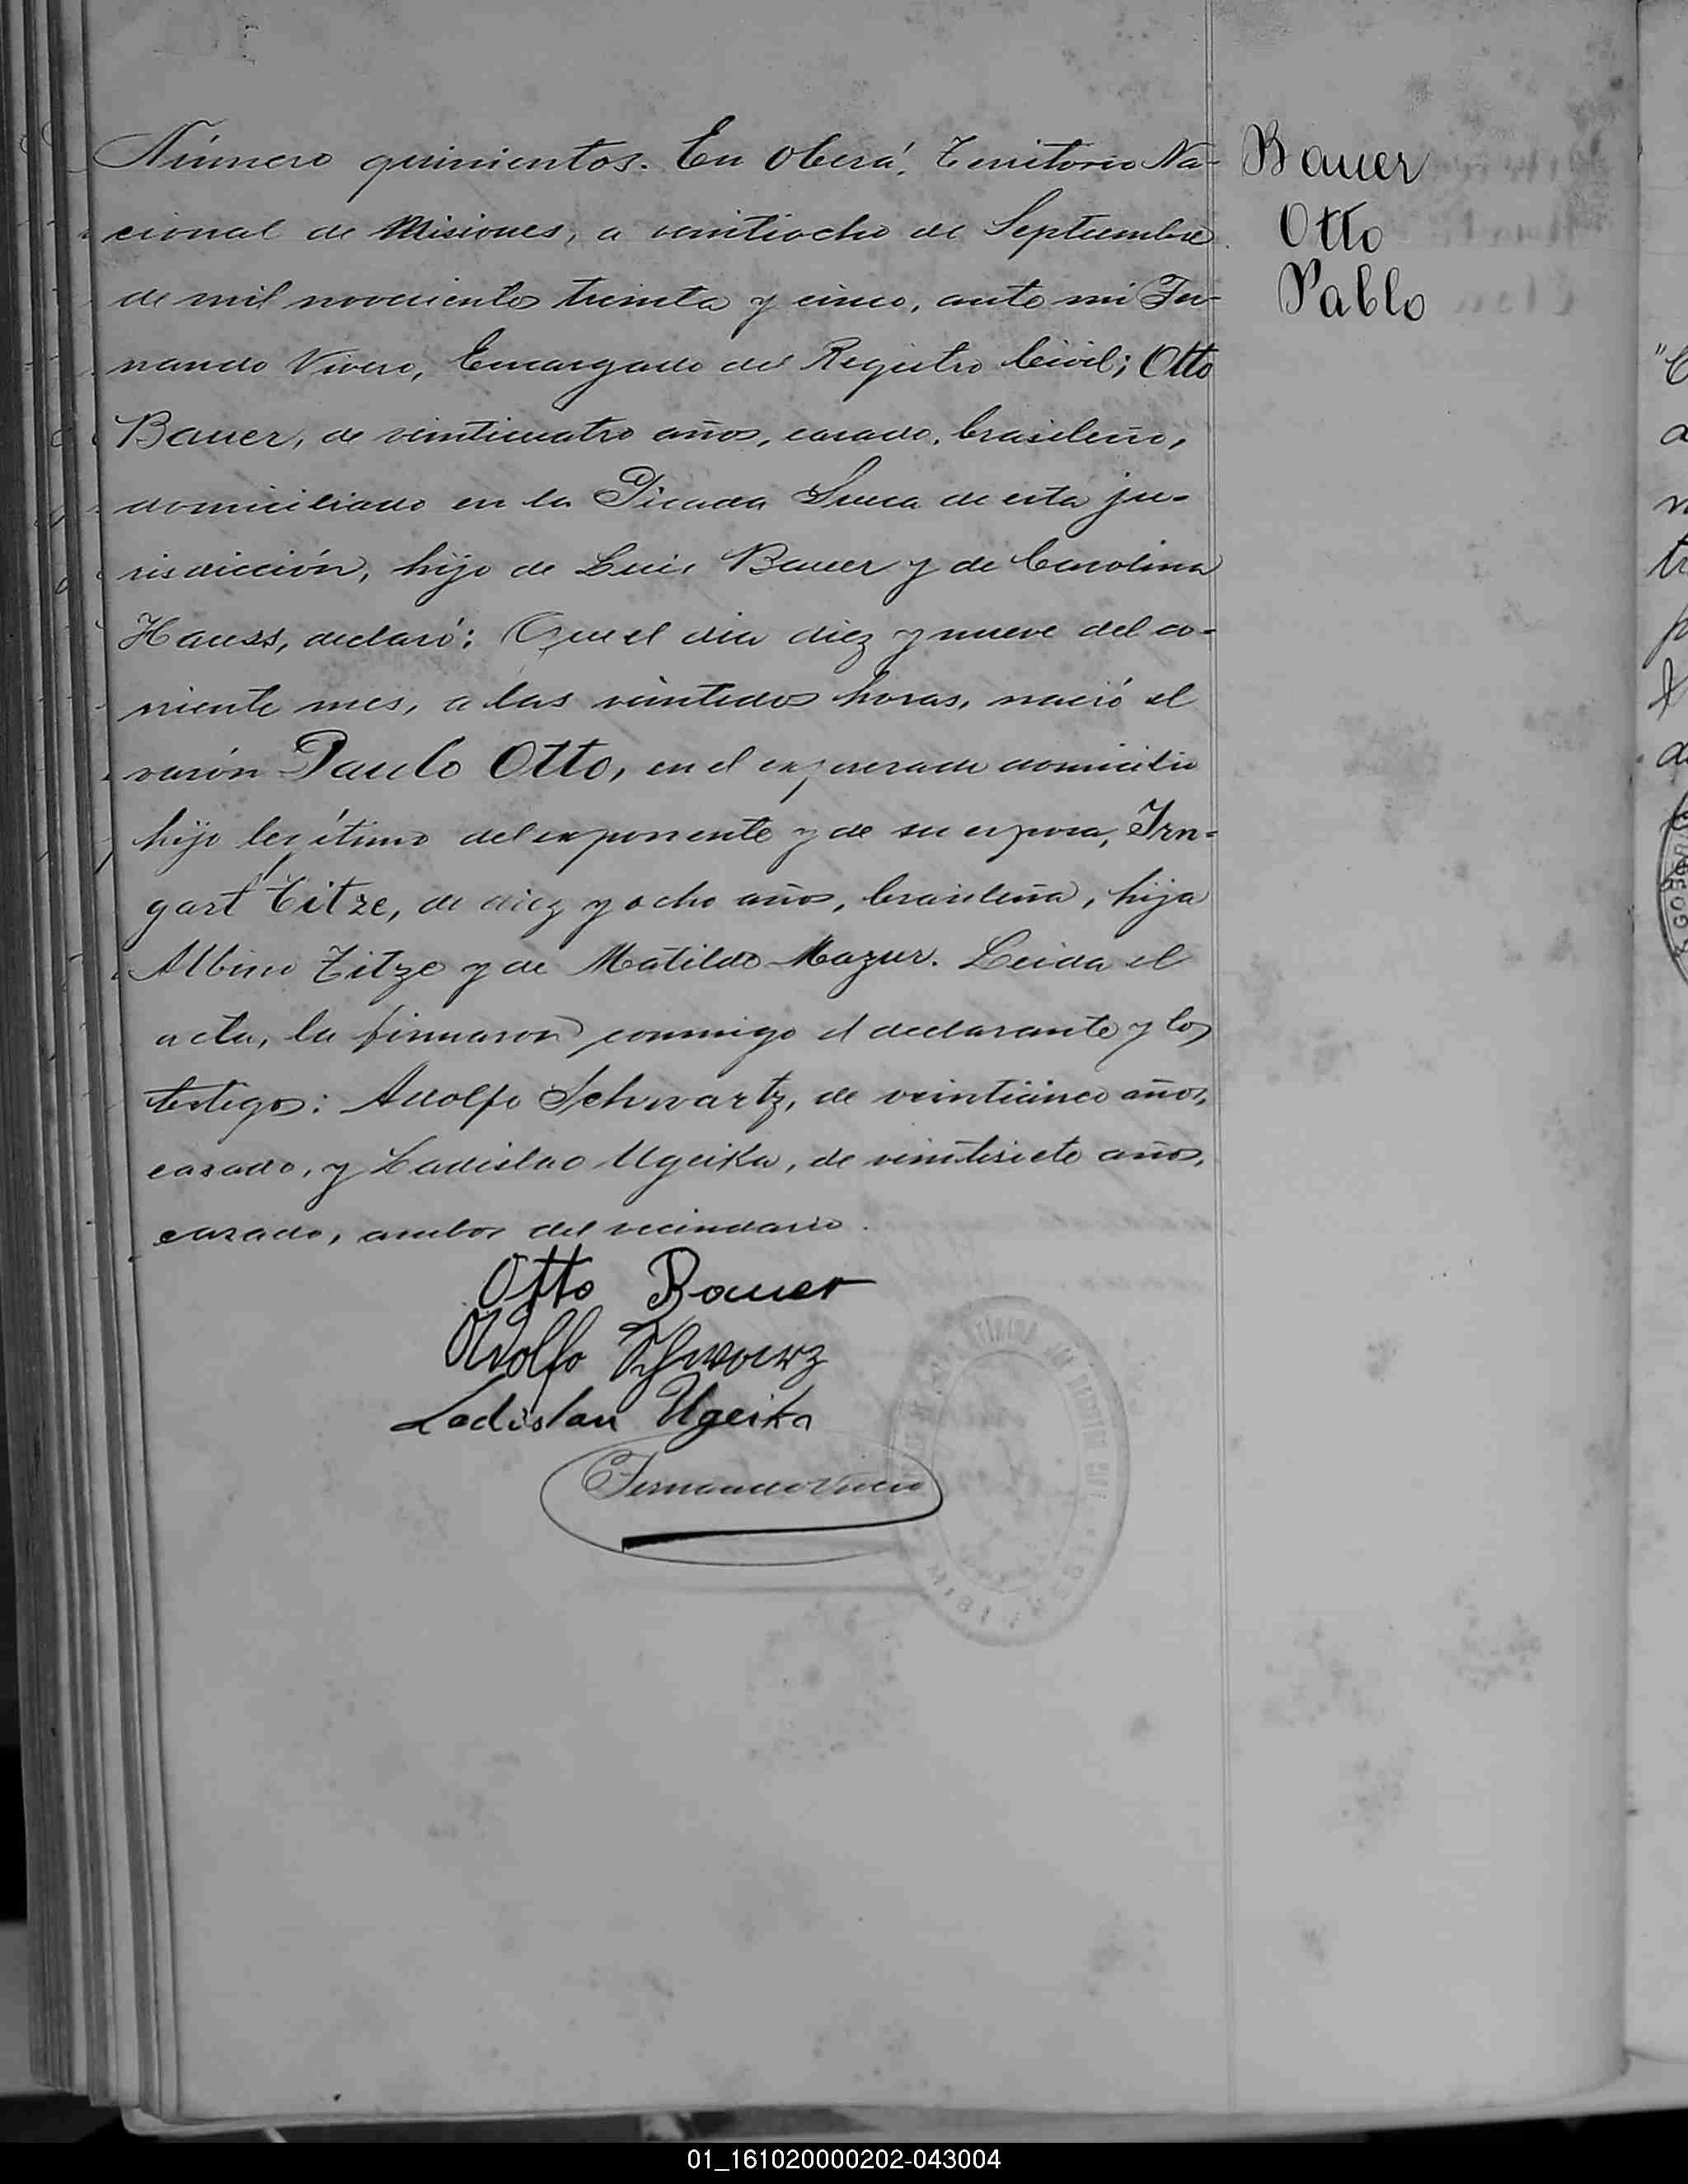 Número quinientos. En Oberá, Territorio Na-
cional de Misiones, a veintiocho de Septiembre
de mil novecientos treinta y cinco, ante mi Fer-
nando Vivero, Encargado del Registro Civil; Otto
Bauer, de veinticuatro años, casado, brasileño,
domiciliado en la Picada Sueca de esta ju-
risdicción, hijo de Luis Bauer y de Carolina
Hauss, declaró: Que el dia diez y nueve del co-
rriente mes, a las veintidos horas, nació el
varón Paulo Otto, en el expresado domicilio
hijo legítimo del exponente y de su esposa, Irn-
gart Titze, de diez y ocho años, brasileña, hija
Albino Titze y de Matilde Mazur. Leida el
acta, la firmaron conmigo el declarante y los
testigos: Adolfo Schwartz, de veinticinco años,
casado, y Ladislao Ugeika, de veintisiete años,
casado, ambos del vecindario.
Otto Bauer
Adolfo Schwarz
Ladislau Ugeika
Fernando Vivero
Bauer
Otto
Pablo
01_161020000202-043004